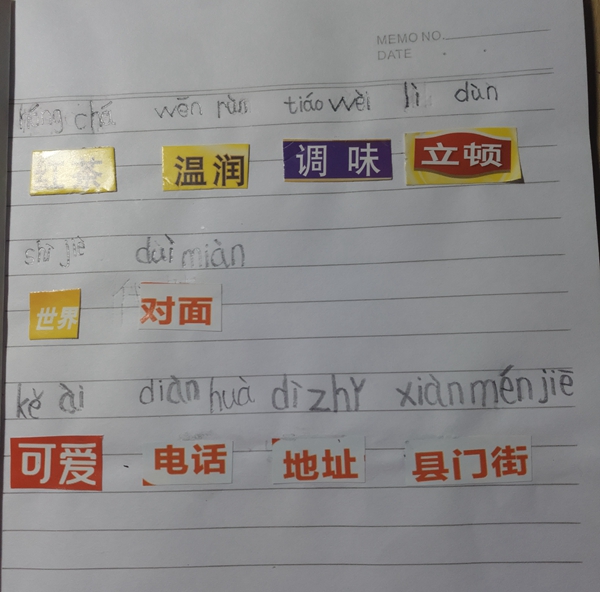 MEMO NO.
DATE . .
hóng chá wēn rùn tiáo wèi lì dùn
红茶 温润 调味 立顿
shì jiè duì miàn
世界 对面
kě ài diàn huà dì zhǐ xiàn mén jiē
可爱 电话 地址 县门街